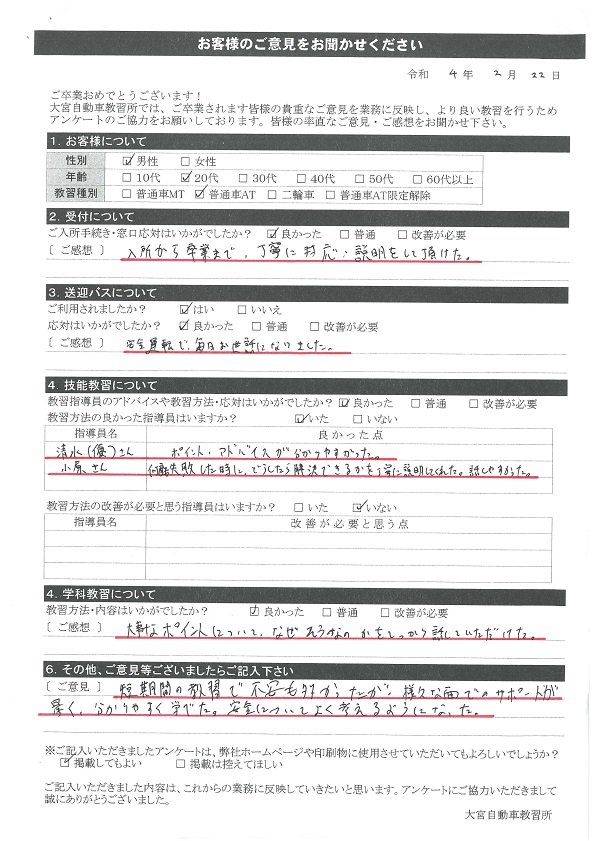 お客様のご意見をお聞かせください
令和 4 年 2 月 22 日
ご卒業おめでとうございます！
大宮自動車教習所では、ご卒業されます皆様の貴重なご意見を業務に反映し、より良い教習を行うため
アンケートのご協力をお願いしております。皆様の率直なご意見・ご感想をお聞かせ下さい。
1. お客様について
性別 ☑男性 □女性
年齢 □10代 ☑20代 □30代 □40代 □50代 □60代以上
教習種別 □普通車MT ☑普通車AT □二輪車 □普通車AT限定解除
2. 受付について
ご入所手続き・窓口応対はいかがでしたか？ ☑良かった □普通 □改善が必要
〔 ご感想 〕 入所から卒業まで、丁寧に対応・説明をして頂けた。
3. 送迎バスについて
ご利用されましたか？ ☑はい □いいえ
応対はいかがでしたか？ ☑良かった □普通 □改善が必要
〔 ご感想 〕 安全運転で、毎日お世話になりました。
4. 技能教習について
教習指導員のアドバイスや教習方法・応対はいかがでしたか？ ☑良かった □普通 □改善が必要
教習方法の良かった指導員はいますか？ ☑いた □いない
指導員名 良かった点
清水(優)さん ポイント・アドバイスが分かりやすかった。
小原さん 何故失敗した時に、どうしたら解決できるかを丁寧に説明してくれた。話しやすかった。
教習方法の改善が必要と思う指導員はいますか？ □いた ☑いない
指導員名 改善が必要と思う点
4. 学科教習について
教習方法・内容はいかがでしたか？ ☑良かった □普通 □改善が必要
〔 ご感想 〕 大事なポイントについて、なぜそうなのかをしっかり話していただけた。
6. その他、ご意見等ございましたらご記入下さい
〔 ご意見 〕 短期間の教習で不安も多かったが、様々な面でのサポートが
厚く、分かりやすく学べた。安全についてよく考えるようになった。
※ご記入いただきましたアンケートは、弊社ホームページや印刷物に使用させていただいてもよろしいでしょうか？
☑掲載してもよい □掲載は控えてほしい
ご記入いただきました内容は、これからの業務に反映していきたいと思います。アンケートにご協力いただきまして
誠にありがとうございました。
大宮自動車教習所